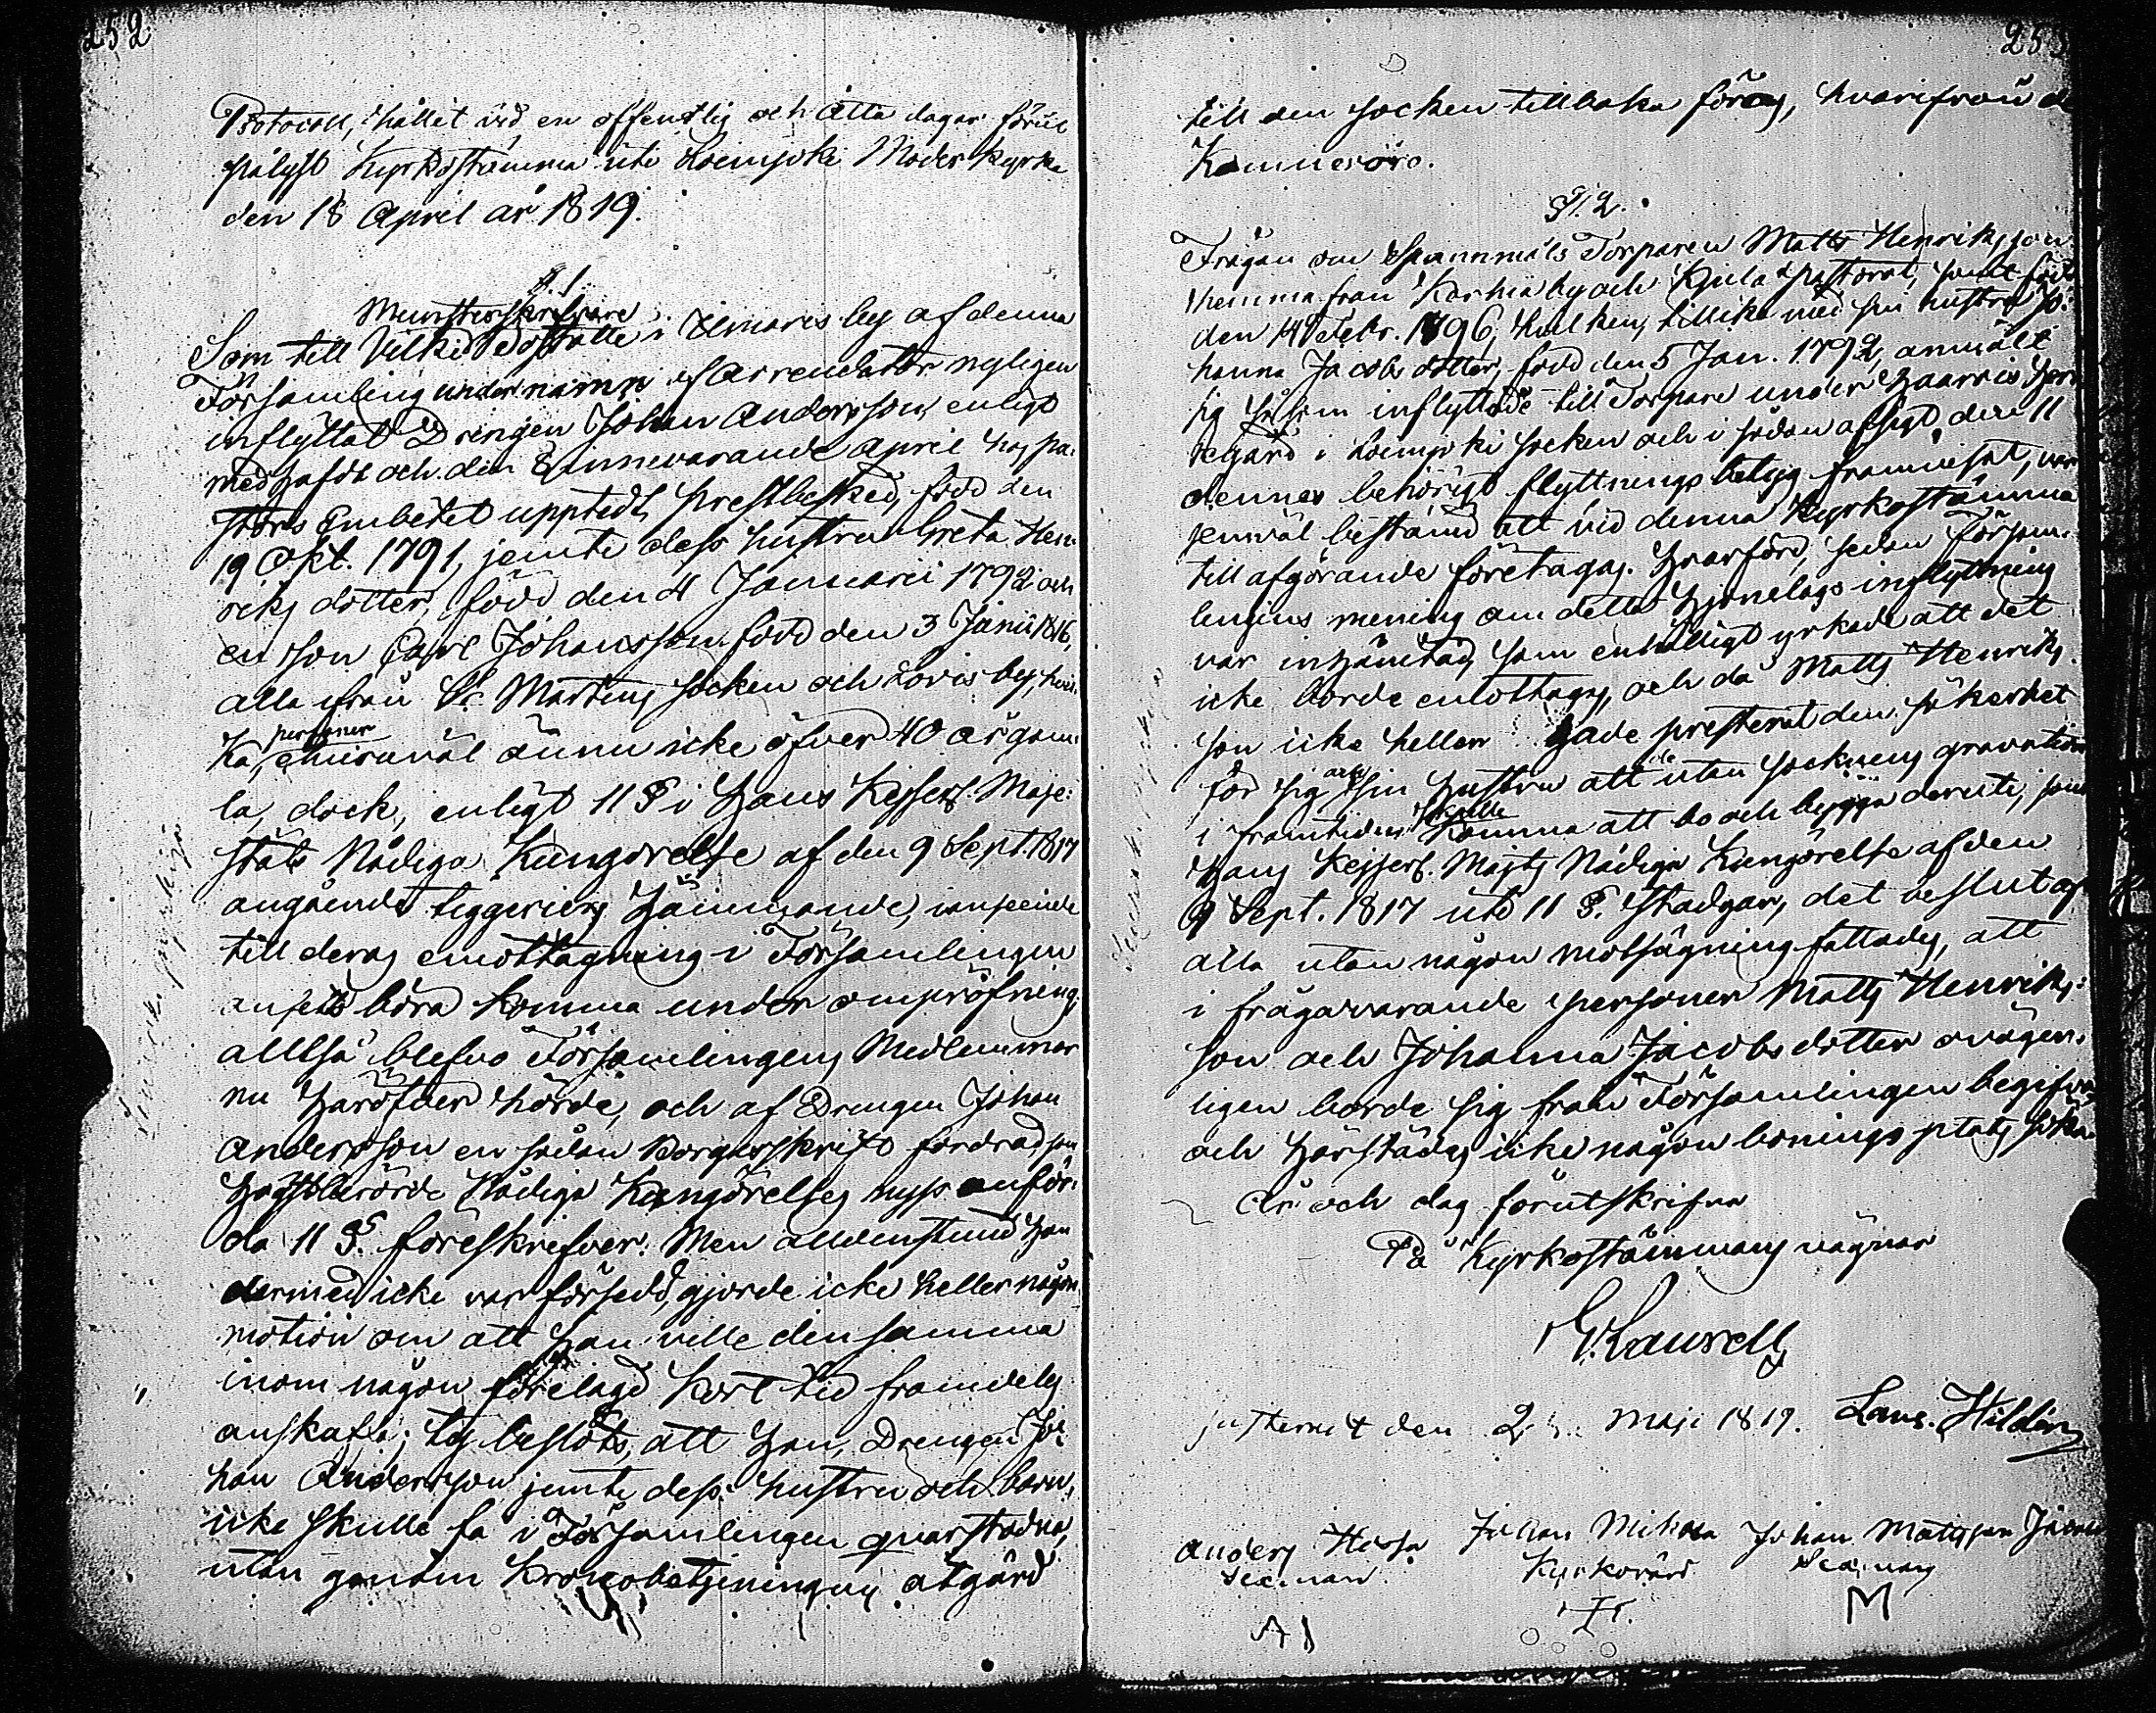 252
Protocoll, hållit vid en offentlig och åtta dagar förut
pålyst Kyrkostämma uti Loimjoki Moderkyrka
den 18 April år 1819.
§. 1
Munsterskrifvare
Som till Vilkis Boställe i Ilmaris by af denna
Församling under namn af Arrendator nyligen
inflyttat Drängen Johan Andersson, enligt
medhafdt och den 8 innevarande April hos Pa-
stors Embetet upptedt, prestbesked, född den
19 Okt. 1791, jemte dess hustru Greta Hen-
riks dotter, född den 4 Januarii 1792 och
en son Carl Johansson född den 3 Junii 1816,
alla ifrån St. Martens socken och Lovis by, hvil-
personer
ka, ehuruväl ännu icke öfver 40 år gam-
la, dock, enligt 11 § i Hans Kejserl. Maje-
stäts Nådiga Kungörelse af den 9 Sept. 1817
angående tiggeriers hämmande, i anseende
till deras emottagning i Församlingen
ansetts böra komma under ompröfning;
alltså blefvo Församlingens Medlemmar
nu häröfver hörde, och af Drengen Johan
Andersson en sådan Borgesskrift fordrad, som
högstberörde Nådiga Kungörelses nyss anför-
da 11 §. föreskrifver. Men alldenstund han
dermed icke var försedd, gjorde icke heller någon
motion om att han ville densamma
inom någon förelagd kort tid framdeles
anskaffa; ty beslöts, att han, Drengen Jo-
han Andersson jemte dess hustru och barn,
icke skulle få i Församlingen qvarstadna,
utan genom Kronobetjeningens åtgärd
253
till den socken tillbaka föras, hvarifrån de
kommer äro.
§. 2.
Frågan om Spannmåls Torparen Matts Henriksson
hemma från Karhia by och Kjula Pastorat, som född
den 14 Febr. 1796, hvilken, tillika med sin hustru Jo-
hanna Jacobs dotter, född den 5 Jan. 1792, anmält
sig såsom inflyttade till Torpare under
i Loimjoki socken och i sådan afsigt den 11
dennes behörigt flyttningsbetyg framvisat, var
jemväl bestämd att vid denna Kyrkostämma
till afgörande företagas. Hvarföre, sedan Försam-
lingens mening om detta Hjonelags inflyttning
var inhämtad, som enhälligt yrkade att det
icke borde emottagas, och då Matts Henriks-
son icke heller hade presterat den säkerhet
för sig och sin hustru att de utan socknens gravation
skulle
i framtiden komma att bo och bygga deruti, som
Hans Kejserl. Majts Nådiga Kungörelse af den
9 Sept. 1817 uti 11 §. stadgar, det beslut af
alla utan någon motsägning fattades, att
i frågavarande personer Matts Henriks-
son och Johanna Jacobs dotter ovägen-
ligen borde sig från Församlingen begifva
och härstädes icke någon bonings plats söka
År och dag förutskrifna
På Kyrkostämmans vägnar
justerat den 2 Maji 1819. Laur. Hildén
Anders Johan Mikola Johan Mattsson
Sexman Kyrkovärd Sexman
M